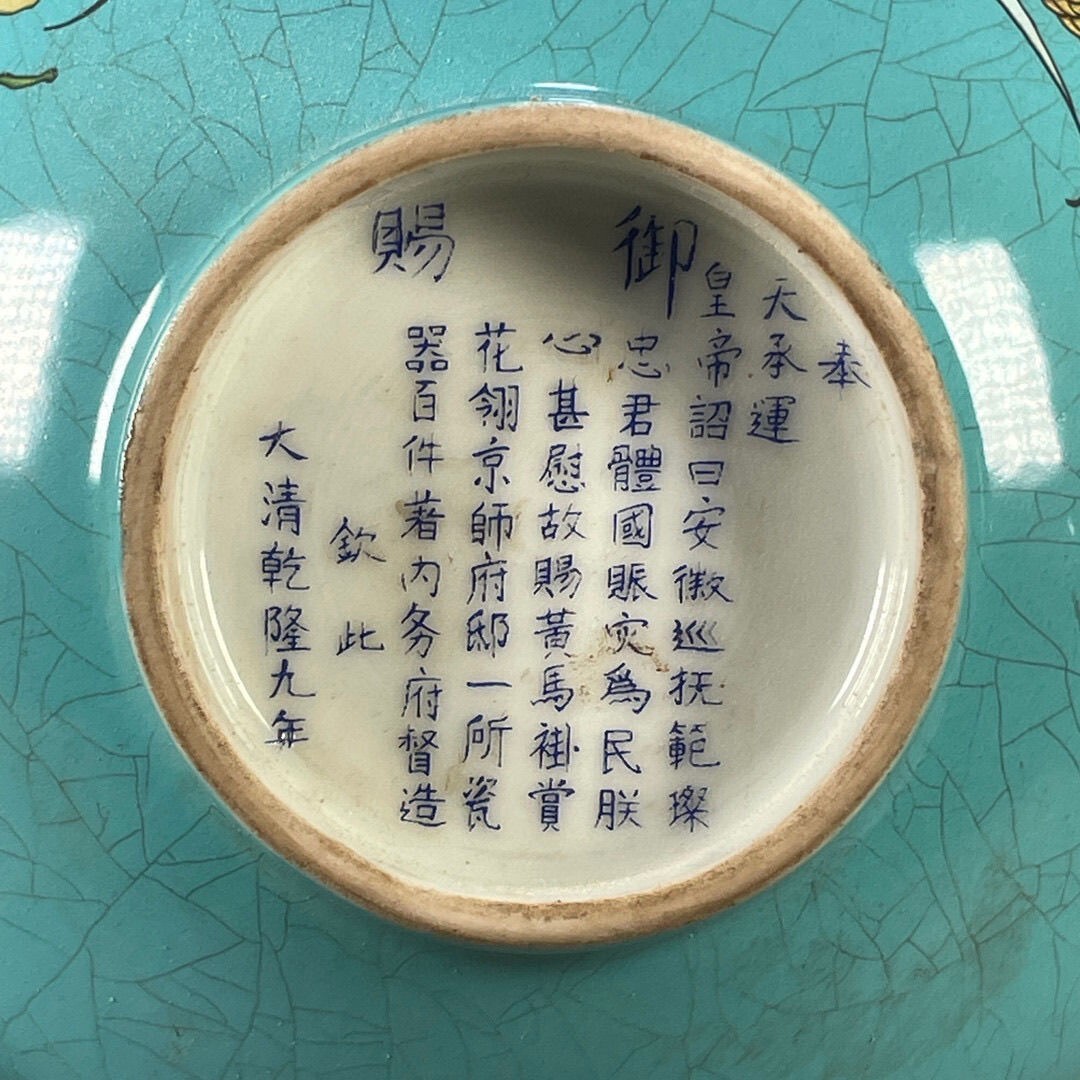 御賜
奉
天承運
皇帝詔曰安徽巡抚範璨
忠君體國賬灾爲民朕
心甚慰故賜黃馬褂賞
花翎京師府邸一所瓷
器百件著内务府督造
欽此
大清乾隆九年